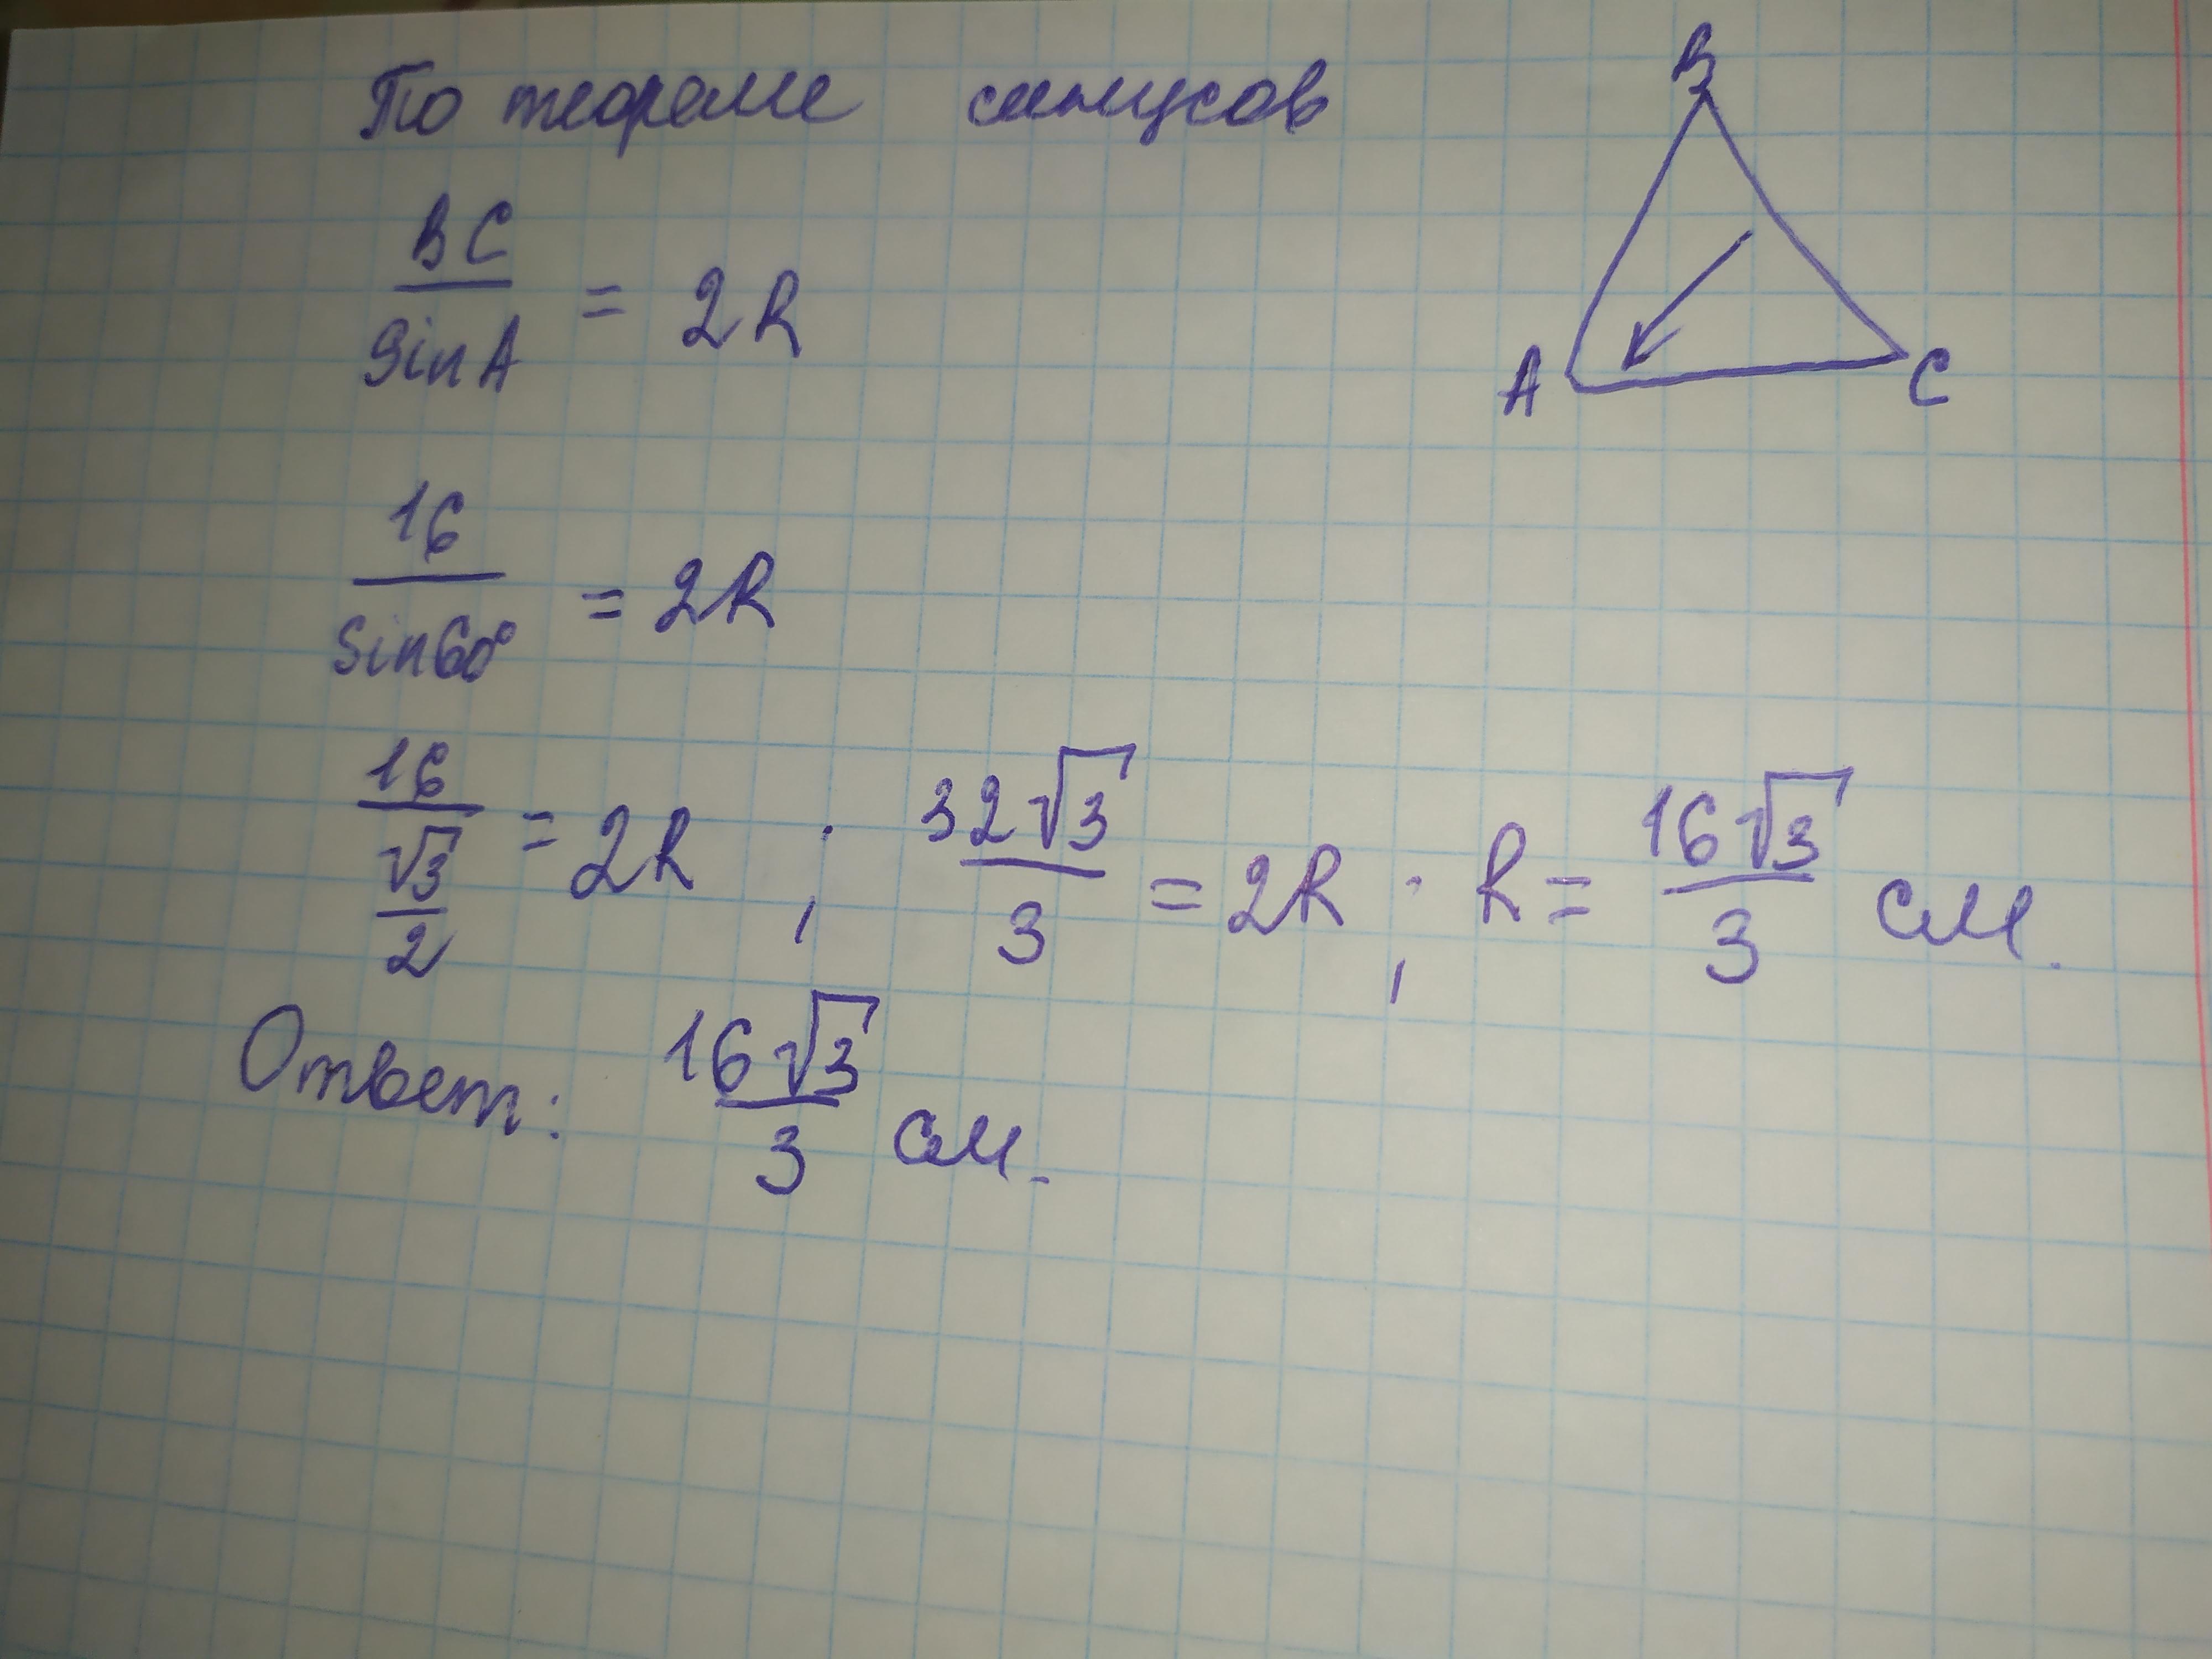 По теореме синусов
B
A
C
BC/sinA = 2R
16/sin60° = 2R
16/(√3/2) = 2R ; 32√3/3 = 2R ; R = 16√3/3 см.
Ответ: 16√3/3 см.